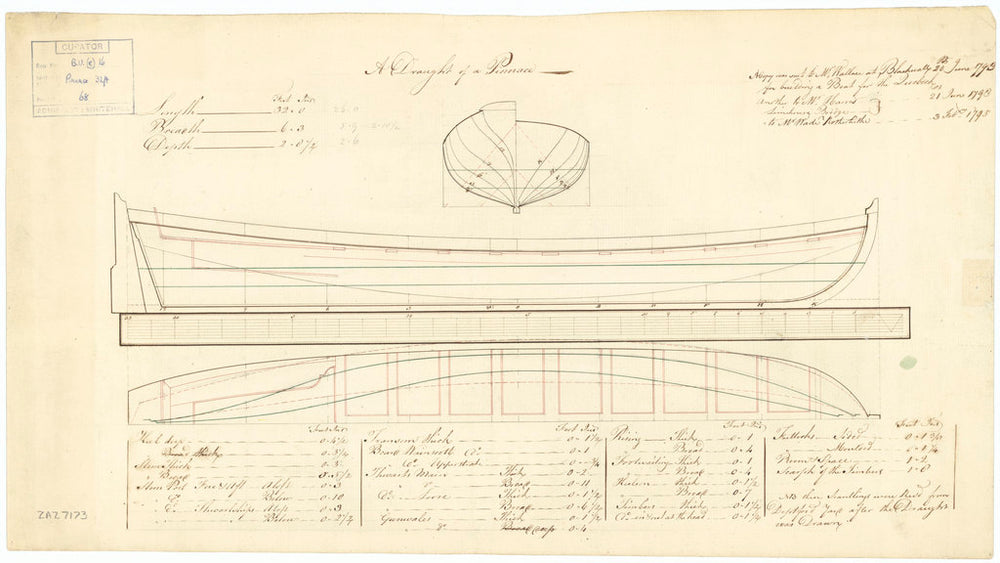 CURATOR
B.U.(c) 16
Pinnace 32ft
68
A Draught of a Pinnace
Feet Ins
Length 32-0
Breadth 6-3
Depth 2-8 1/4
26-0
2-6
A Copy was sent to Mr Wallace at Blackwall 26 June 1793
for building a Boat for the
another to Mr Harris 21 June 1793
Limehouse Bridge
to Mr Wade Rotherhithe 3 Feby 1795
Feet Ins
Keel deep 0-4 1/2
Broad thick 0-3 1/4
Stem Thick 0-3
Broad
Stern Post Fore & Aft Aloft 0-3
Do Below 0-10
Do Thwartships Aloft 0-3
Below 0-2 3/4
Feet Ins
Transom thick 0-1 1/2
Board Do 0-1
Do Upperstrake 0-0 3/4
Thwarts Main Thick 0-2
Do Broad 0-11
Do Fore Thick 0-1 1/2
Broad 0-6 1/2
Gunwales Thick 0-1 3/4
Do Broad 0-4
Feet Ins
Rising Thick 0-1
Broad 0-4
Footwaling Thick 0-1
Broad 0-4
Thick 0-1 1/2
Broad 0-7
Timbers Thick 0-1 1/2
Do at the head 0-1 1/4
Feet Ins
Futtocks Sided 0-1 3/4
Moulded 0-1 1/4
Room & Space 1-2
Scarph of the Timbers 1-0
NB these Scantlings were had from
Deptford Yard after the Draught
was Drawn
ZAZ7173